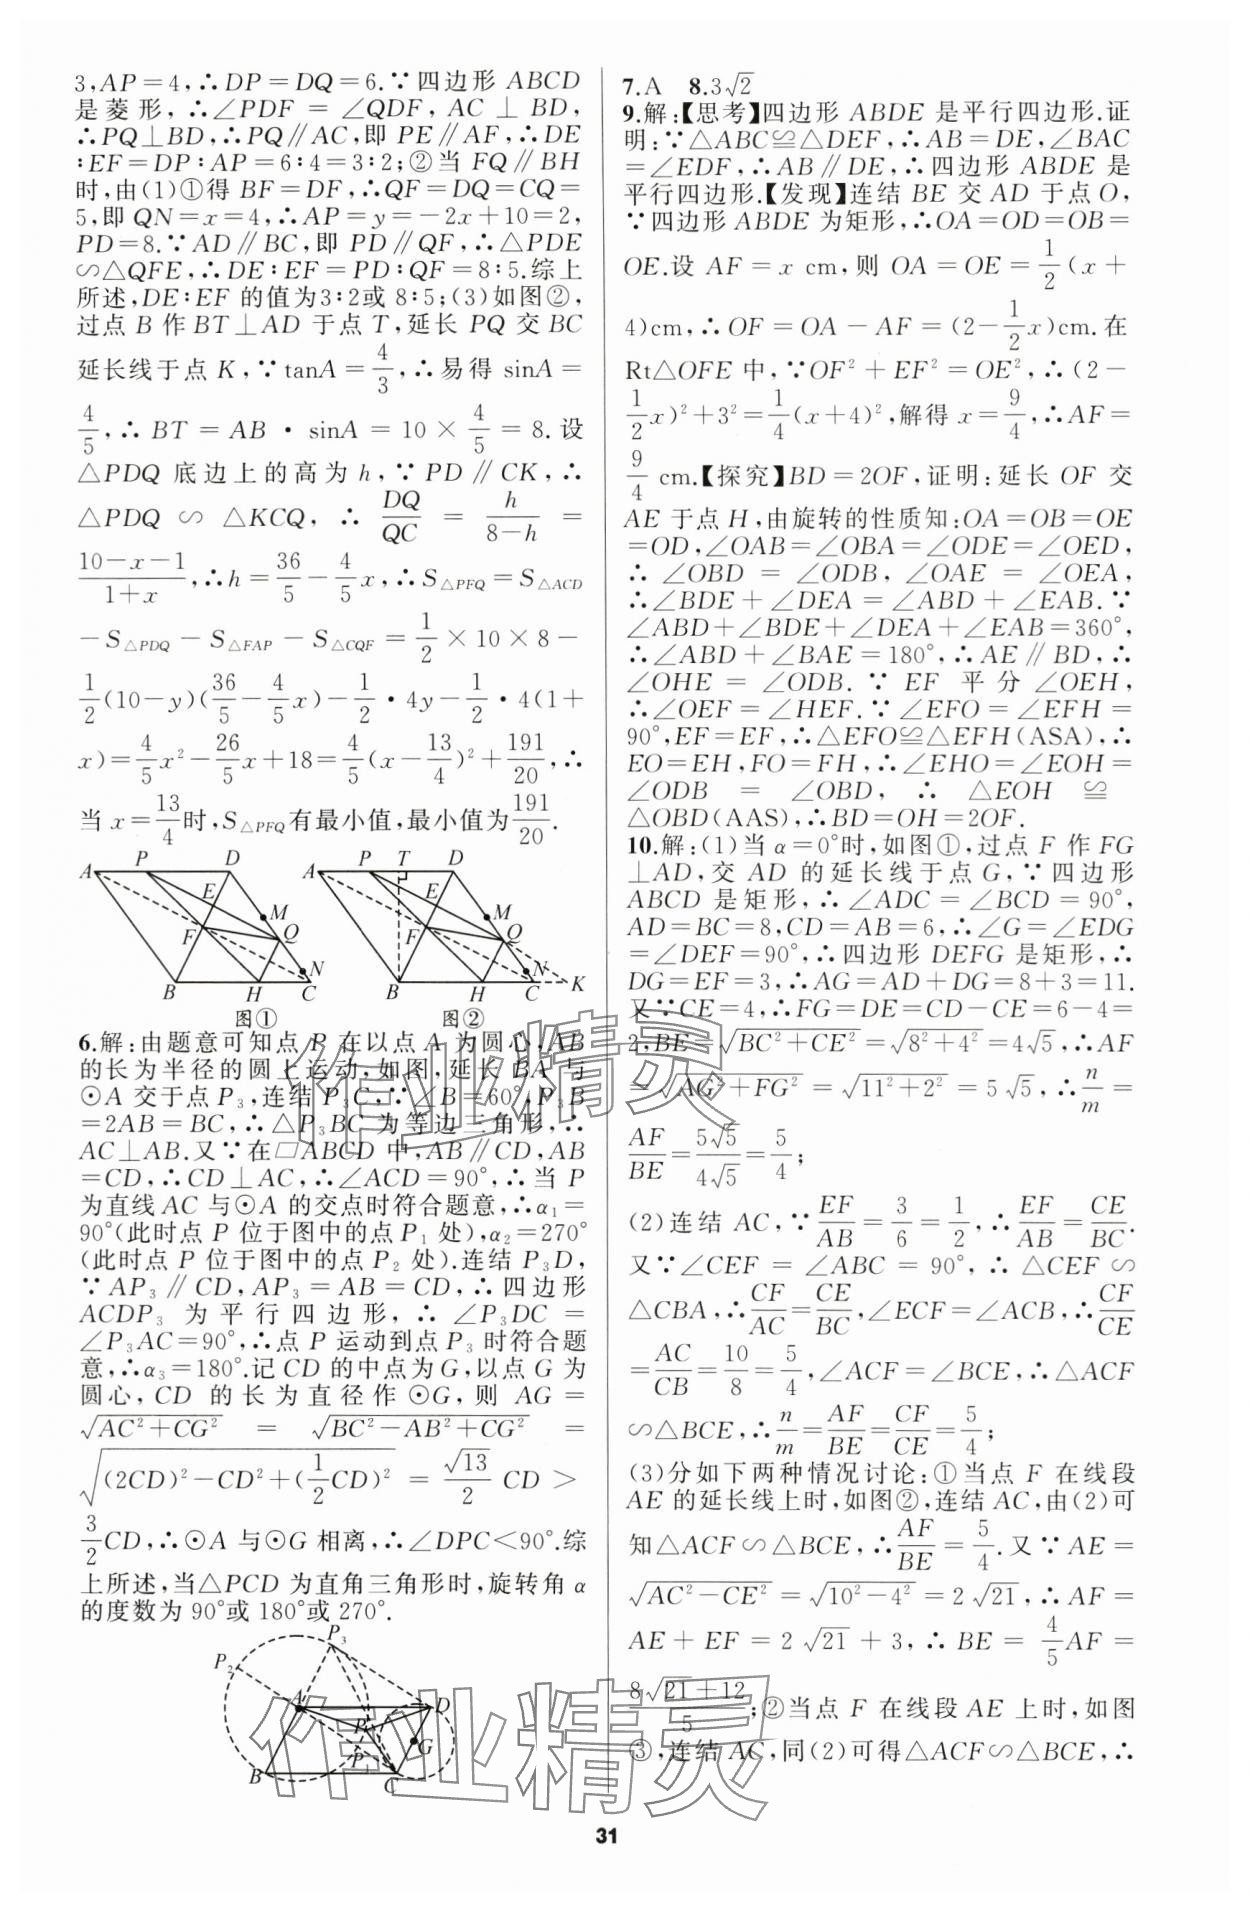 3,AP=4,∴DP=DQ=6.∵四边形 ABCD
是菱形,∴∠PDF=∠QDF,AC⊥BD,
∴PQ⊥BD,∴PQ∥AC,即 PE∥AF,∴DE
∶EF=DP∶AP=6∶4=3∶2;②当 FQ∥BH
时,由(1)①得 BF=DF,∴QF=DQ=CQ=
5,即 QN=x=4,∴AP=y=-2x+10=2,
PD=8.∵AD∥BC,即 PD∥QF,∴△PDE
∽△QFE,∴DE∶EF=PD∶QF=8∶5.综上
所述,DE∶EF 的值为3∶2或 8∶5;(3)如图②,
过点 B 作 BT⊥AD 于点 T,延长 PQ 交 BC
延长线于点 K,∵tanA=4/3,∴易得 sinA=
4/5,∴BT=AB·sinA=10×4/5=8.设
△PDQ 底边上的高为 h,∵PD∥CK,∴
△PDQ∽△KCQ,∴DQ/QC=h/(8-h)=
(10-x-1)/(1+x),∴h=36/5-4/5x,∴S△PFQ=S△ACD
-S△PDQ-S△FAP-S△CQF=1/2×10×8-
1/2(10-y)(36/5-4/5x)-1/2·4y-1/2·4(1+
x)=4/5x²-26/5x+18=4/5(x-13/4)²+191/20,∴
当 x=13/4时,S△PFQ有最小值,最小值为191/20.
A P D E M F Q N B H C
图①
A P T D E M F Q N B H C K
图②
6.解:由题意可知点 P 在以点 A 为圆心,AB
的长为半径的圆上运动,如图,延长 BA 与
⊙A 交于点 P₃,连结 P₃C,∵∠B=60°,P₃B
=2AB=BC,∴△P₃BC 为等边三角形,∴
AC⊥AB.又∵在▱ABCD 中,AB∥CD,AB
=CD,∴CD⊥AC,∴∠ACD=90°,∴当 P
为直线 AC 与⊙A 的交点时符合题意,∴α₁=
90°(此时点 P 位于图中的点 P₁ 处),α₂=270°
(此时点 P 位于图中的点 P₂ 处).连结 P₃D,
∵AP₃∥CD,AP₃=AB=CD,∴四边形
ACDP₃ 为平行四边形,∴∠P₃DC=
∠P₃AC=90°,∴点 P 运动到点 P₃ 时符合题
意,∴α₃=180°.记 CD 的中点为 G,以点 G 为
圆心,CD 的长为直径作⊙G,则 AG=
√(AC²+CG²)=√(BC²-AB²+CG²)=
√((2CD)²-CD²+(1/2CD)²)=√13/2CD>
3/2CD,∴⊙A 与⊙G 相离,∴∠DPC<90°.综
上所述,当△PCD 为直角三角形时,旋转角 α
的度数为 90°或 180°或 270°.
P₃ P₂ A D P G P₁ B C
7.A 8.3√2
9.解:【思考】四边形 ABDE 是平行四边形.证
明:∵△ABC≌△DEF,∴AB=DE,∠BAC
=∠EDF,∴AB∥DE,∴四边形 ABDE 是
平行四边形.【发现】连结 BE 交 AD 于点 O,
∵四边形 ABDE 为矩形,∴OA=OD=OB=
OE.设 AF=x cm,则 OA=OE=1/2(x+
4)cm,∴OF=OA-AF=(2-1/2x)cm.在
Rt△OFE 中,∵OF²+EF²=OE²,∴(2-
1/2x)²+3²=1/4(x+4)²,解得 x=9/4,∴AF=
9/4 cm.【探究】BD=2OF,证明:延长 OF 交
AE 于点 H,由旋转的性质知:OA=OB=OE
=OD,∠OAB=∠OBA=∠ODE=∠OED,
∴∠OBD=∠ODB,∠OAE=∠OEA,
∴∠BDE+∠DEA=∠ABD+∠EAB.∵
∠ABD+∠BDE+∠DEA+∠EAB=360°,
∴∠ABD+∠BAE=180°,∴AE∥BD,∴
∠OHE=∠ODB.∵EF 平分∠OEH,
∴∠OEF=∠HEF.∵∠EFO=∠EFH=
90°,EF=EF,∴△EFO≌△EFH(ASA),∴
EO=EH,FO=FH,∴∠EHO=∠EOH=
∠ODB=∠OBD,∴△EOH≌
△OBD(AAS),∴BD=OH=2OF.
10.解:(1)当 α=0°时,如图①,过点 F 作 FG
⊥AD,交 AD 的延长线于点 G,∵四边形
ABCD 是矩形,∴∠ADC=∠BCD=90°,
AD=BC=8,CD=AB=6,∴∠G=∠EDG
=∠DEF=90°,∴四边形 DEFG 是矩形,∴
DG=EF=3,∴AG=AD+DG=8+3=11.
又∵CE=4,∴FG=DE=CD-CE=6-4=
2,BE=√(BC²+CE²)=√(8²+4²)=4√5,∴AF
=√(AG²+FG²)=√(11²+2²)=5√5,∴n/m=
AF/BE=5√5/4√5=5/4;
(2)连结 AC,∵EF/AB=3/6=1/2,∴EF/AB=CE/BC.
又∵∠CEF=∠ABC=90°,∴△CEF∽
△CBA,∴CF/AC=CE/BC,∠ECF=∠ACB,∴CF/CE
=AC/CB=10/8=5/4,∠ACF=∠BCE,∴△ACF
∽△BCE,∴n/m=AF/BE=CF/CE=5/4;
(3)分如下两种情况讨论:①当点 F 在线段
AE 的延长线上时,如图②,连结 AC,由(2)可
知△ACF∽△BCE,∴AF/BE=5/4.又∵AE=
√(AC²-CE²)=√(10²-4²)=2√21,∴AF=
AE+EF=2√21+3,∴BE=4/5AF=
(8√21+12)/5;②当点 F 在线段 AE 上时,如图
③,连结 AC,同(2)可得△ACF∽△BCE,∴
31
作业精灵
作业精灵